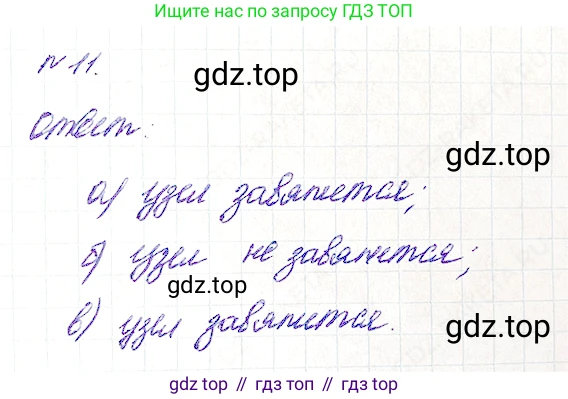 Ищите нас по запросу ГДЗ ТОП
№ 11.
gdz.top
Ответ:
gdz.top
а) узел завяжется;
б) узел не завяжется;
gdz.top
в) узел завяжется.
gdz.top
gdz.top // гдз топ // gdz.top // гдз топ